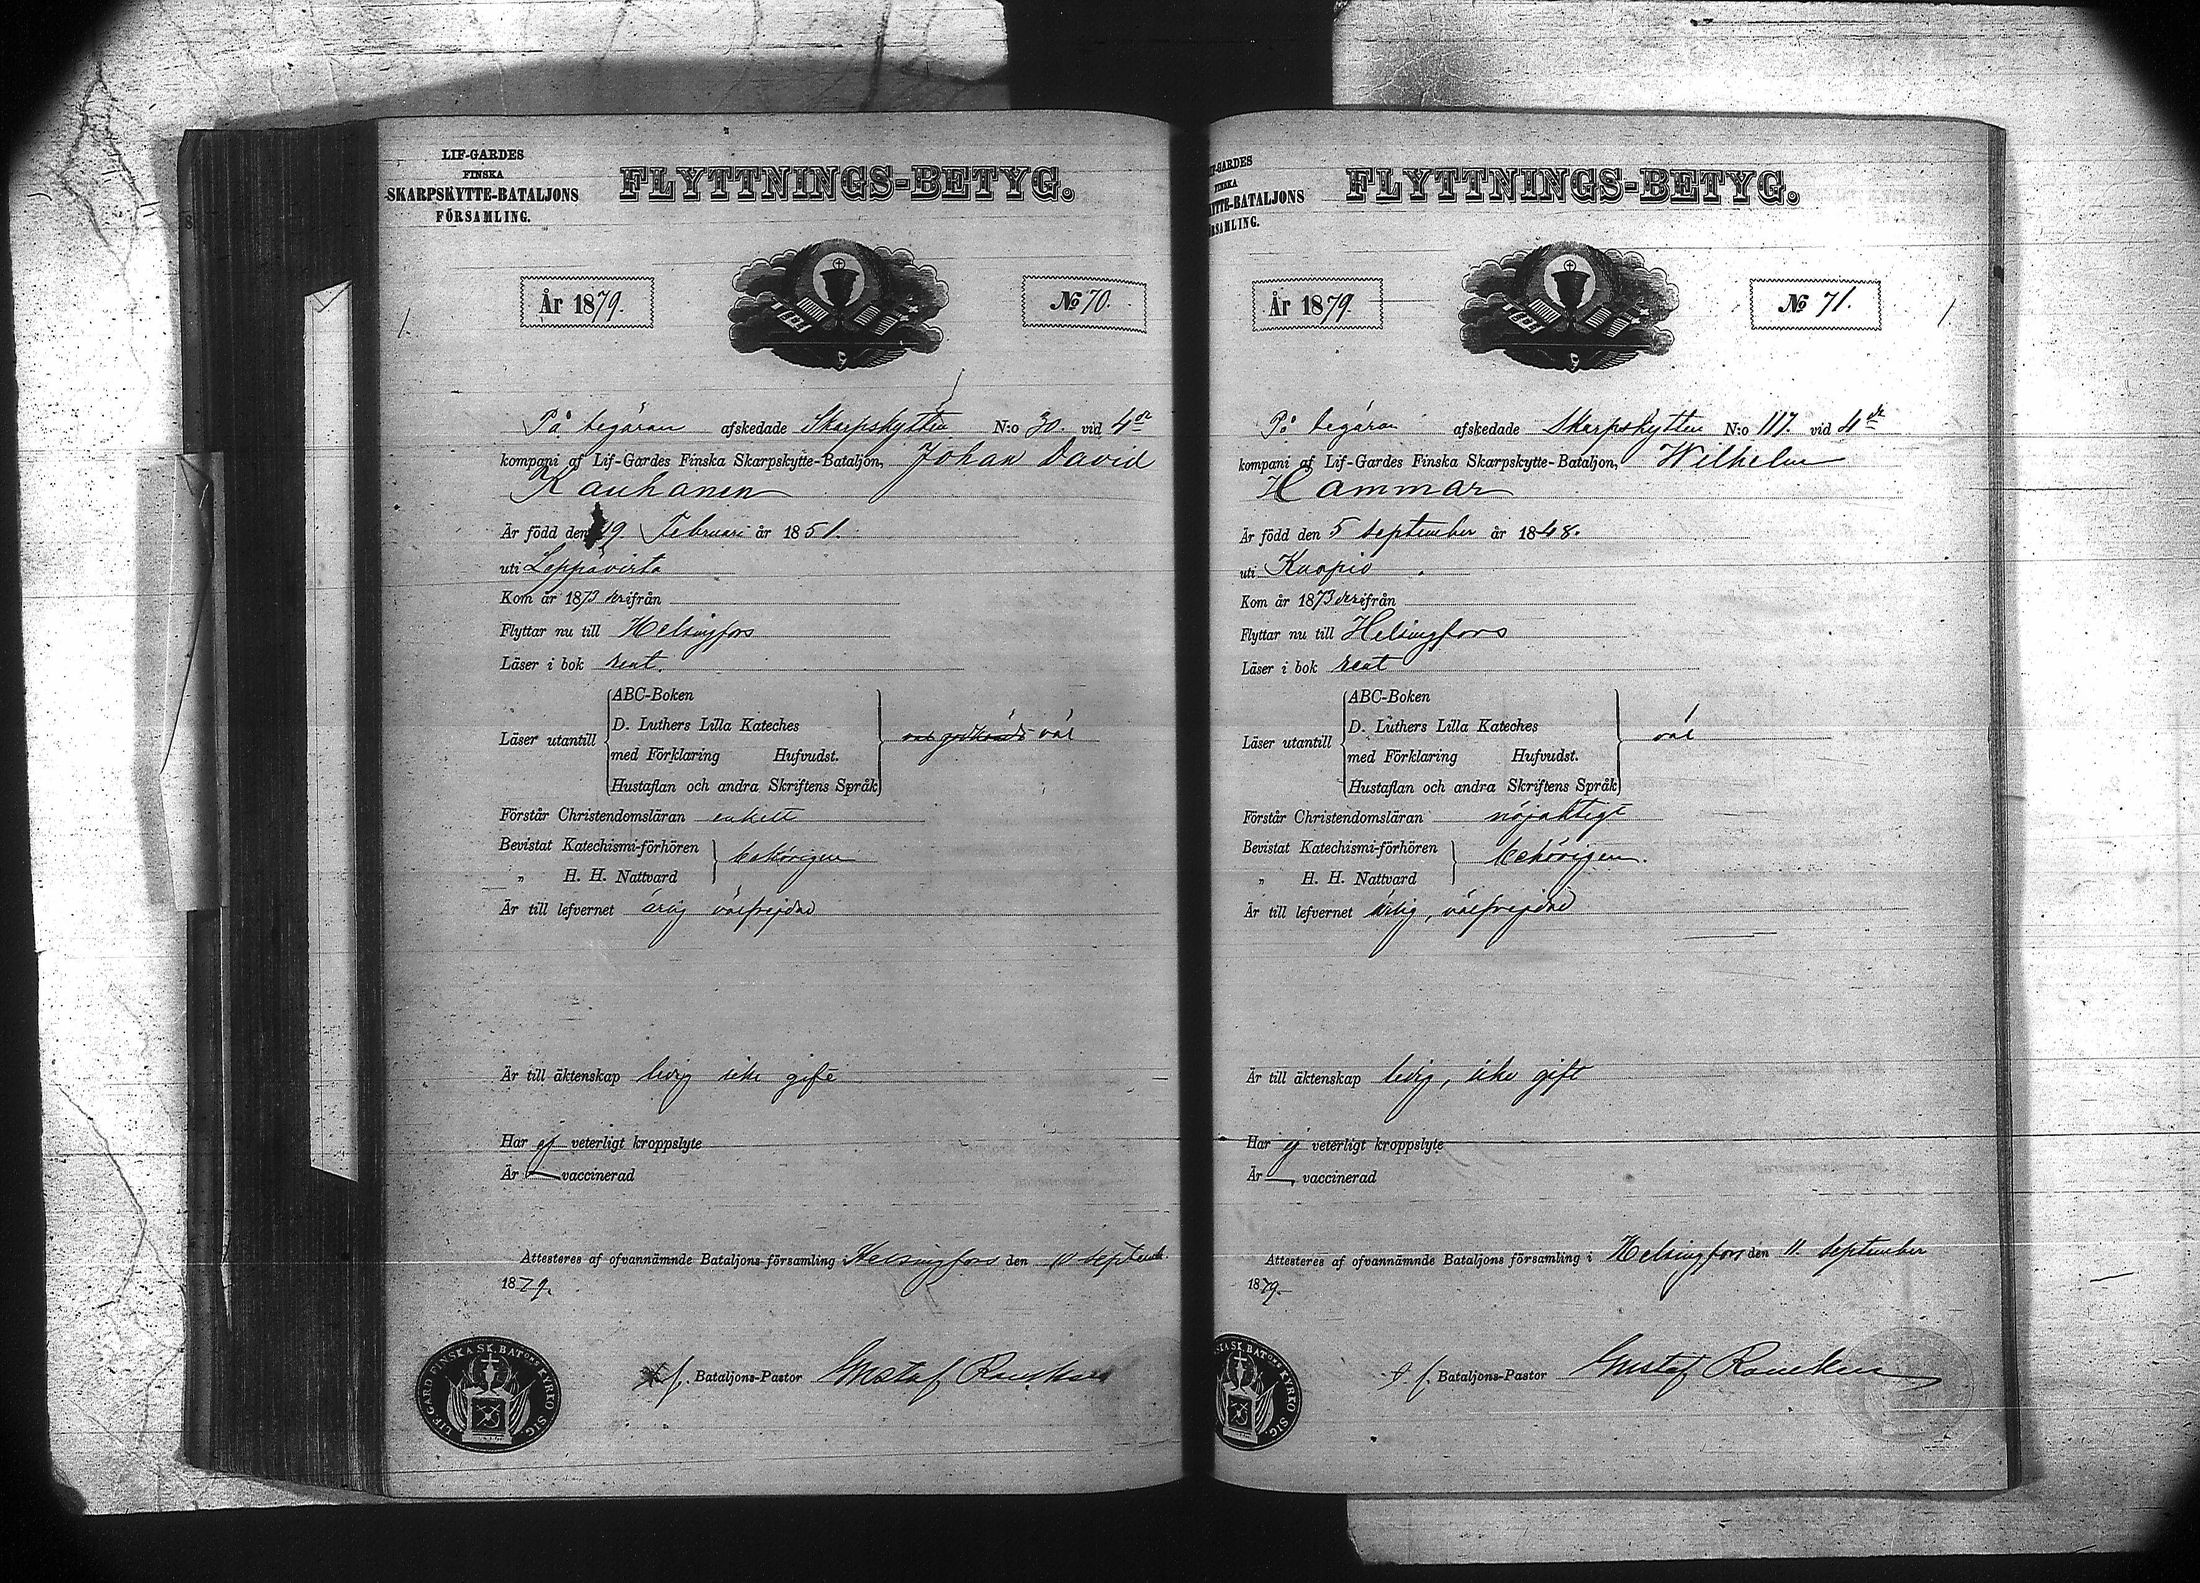 LIF-GARDES
FINSKA
SKARPSKYTTE-BATALJONS
FÖRSAMLING.
FLYTTNINGS-BETYG.
År 1879.
№ 70.
På begäran afskedade Skarpskytten N:o 30. vid 4de
kompani af Lif-Gardes Finska Skarpskytte-Bataljon, Johan David
Kauhanen
Är född den 19. Februari år 1851.
uti Leppävirta
Kom år 1873 derifrån
Flyttar nu till Helsingfors
Läser i bok rent.
Läser utantill
ABC-Boken
D. Luthers Lilla Kateches
med Förklaring Hufvudst.
Hustaflan och andra Skriftens Språk
väl
Förstår Christendomsläran enkelt
Bevistat Katechismi-förhören
„ H. H. Nattvard
behörigen
Är till lefvernet ärlig välfrejdad
Är till äktenskap ledig icke gift
Har ej veterligt kroppslyte
Är — vaccinerad
Attesteres af ofvannämnde Bataljons församling Helsingfors den 10 Septemb
1879.
f. Bataljons-Pastor Gustaf
LIF. GARD. FINSKA SK. BATons KYRKO SIG.
LIF-GARDES
FINSKA
YTTE-BATALJONS
RSAMLING.
FLYTTNINGS-BETYG.
År 1879.
№ 71.
På begäran afskedade Skarpskytten N:o 117. vid 4de
kompani af Lif-Gardes Finska Skarpskytte-Bataljon, Wilhelm
Hammar
Är född den 5 September år 1848.
uti Kuopio
Kom år 1873 derifrån
Flyttar nu till Helsingfors
Läser i bok rent
Läser utantill
ABC-Boken
D. Luthers Lilla Kateches
med Förklaring Hufvudst.
Hustaflan och andra Skriftens Språk
väl
Förstår Christendomsläran nöjaktigt
Bevistat Katechismi-förhören
„ H. H. Nattvard
behörigen.
Är till lefvernet ärlig, välfrejdad
Är till äktenskap ledig, icke gift
Har ej veterligt kroppslyte
Är — vaccinerad
Attesteres af ofvannämnde Bataljons församling i Helsingfors den 11. September
1879.
f. Bataljons-Pastor Gustaf
SKA SK. BATons KYRKO SIG.